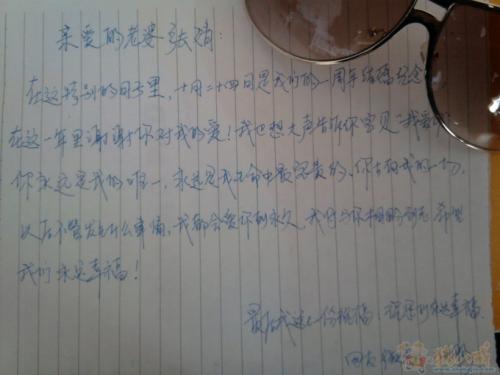 亲爱的老婆张娟:
在这特别的日子里,十月二十四日是我们的一周年结婚纪念
在这一年里谢谢你对我的爱!我也想大声告诉你宝贝一我爱
你永远是我的唯一,永远是我生命中最宝贵的、你占据我的一切,
以后不管发生什么事情,我都会爱你到永久,我会与你相 希望
我们永远幸福!
最后我送上一份祝福,祝愿我们永远幸福